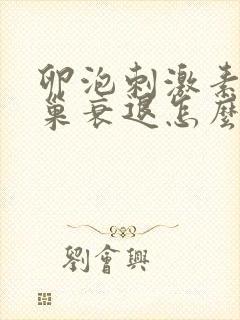 卵泡刺激素
巢衰退怎麼
劉會興